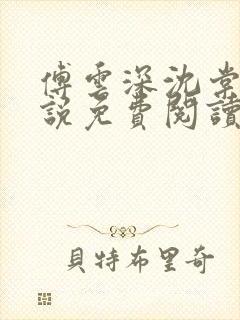 傅雲深沈棠
說免費閱讀
貝特布里奇